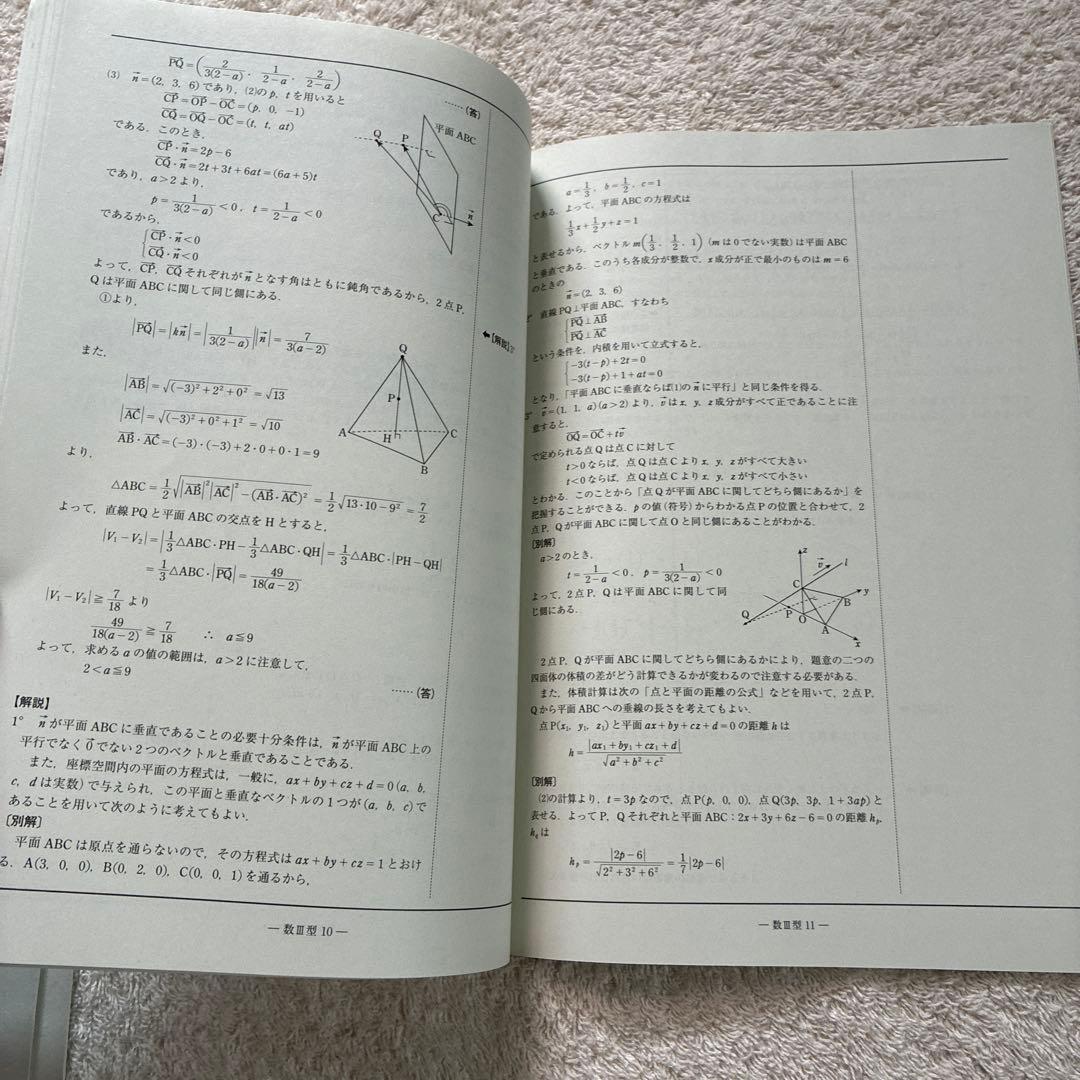 $\overrightarrow{PQ}=\left(\frac{2}{3(2-a)},\ \frac{1}{2-a},\ \frac{2}{2-a}\right)$
……(答)
(3) $\vec{n}$=(2, 3, 6)であり，(2)のp，tを用いると
$\overrightarrow{CP}=\overrightarrow{OP}-\overrightarrow{OC}$=(p, 0, −1)
$\overrightarrow{CQ}=\overrightarrow{OQ}-\overrightarrow{OC}$=(t, t, at)
である．このとき，
$\overrightarrow{CP}\cdot\vec{n}=2p-6$
$\overrightarrow{CQ}\cdot\vec{n}=2t+3t+6at=(6a+5)t$
であり，a>2より，
$p=\frac{1}{3(2-a)}<0,\ t=\frac{1}{2-a}<0$
であるから，
$\begin{cases}\overrightarrow{CP}\cdot\vec{n}<0\\ \overrightarrow{CQ}\cdot\vec{n}<0\end{cases}$
Q P 平面ABC
C $\vec{n}$
よって，$\overrightarrow{CP}$，$\overrightarrow{CQ}$それぞれが$\vec{n}$となす角はともに鈍角であるから，2点P，
Qは平面ABCに関して同じ側にある．
①より，
$|\overrightarrow{PQ}|=|k\vec{n}|=\left|\frac{1}{3(2-a)}\right||\vec{n}|=\frac{7}{3(a-2)}$
また，
$|\overrightarrow{AB}|=\sqrt{(-3)^2+2^2+0^2}=\sqrt{13}$
$|\overrightarrow{AC}|=\sqrt{(-3)^2+0^2+1^2}=\sqrt{10}$
$\overrightarrow{AB}\cdot\overrightarrow{AC}=(-3)\cdot(-3)+2\cdot0+0\cdot1=9$
より，
Q
P
A H C
B
$\triangle ABC=\frac{1}{2}\sqrt{|\overrightarrow{AB}|^2|\overrightarrow{AC}|^2-(\overrightarrow{AB}\cdot\overrightarrow{AC})^2}=\frac{1}{2}\sqrt{13\cdot10-9^2}=\frac{7}{2}$
よって，直線PQと平面ABCの交点をHとすると，
$|V_1-V_2|=\left|\frac{1}{3}\triangle ABC\cdot PH-\frac{1}{3}\triangle ABC\cdot QH\right|=\frac{1}{3}\triangle ABC\cdot|PH-QH|$
$=\frac{1}{3}\triangle ABC\cdot|\overrightarrow{PQ}|=\frac{49}{18(a-2)}$
$|V_1-V_2|\geqq\frac{7}{18}$ より
$\frac{49}{18(a-2)}\geqq\frac{7}{18}$ ∴ a≦9
よって，求めるaの値の範囲は，a>2に注意して，
2<a≦9
……(答)
【解説】
1° $\vec{n}$が平面ABCに垂直であることの必要十分条件は，$\vec{n}$が平面ABC上の
平行でなく$\vec{0}$でない2つのベクトルと垂直であることである．
また，座標空間内の平面の方程式は，一般に，ax+by+cz+d=0 (a, b,
c, dは実数)で与えられ，この平面と垂直なベクトルの1つが(a, b, c)で
あることを用いて次のように考えてもよい．
[別解]
平面ABCは原点を通らないので，その方程式はax+by+cz=1とおけ
る．A(3, 0, 0)，B(0, 2, 0)，C(0, 0, 1)を通るから，
― 数Ⅲ型 10 ―
$a=\frac{1}{3},\ b=\frac{1}{2},\ c=1$
である．よって，平面ABCの方程式は
$\frac{1}{3}x+\frac{1}{2}y+z=1$
と表せるから，ベクトル$m\left(\frac{1}{3},\ \frac{1}{2},\ 1\right)$ (mは0でない実数)は平面ABC
と垂直である．このうち各成分が整数で，x成分が正で最小のものはm=6
のときの
$\vec{n}$=(2, 3, 6)
直線PQ⊥平面ABC，すなわち
$\begin{cases}\overrightarrow{PQ}\perp\overrightarrow{AB}\\ \overrightarrow{PQ}\perp\overrightarrow{AC}\end{cases}$
という条件を，内積を用いて立式すると，
$\begin{cases}-3(t-p)+2t=0\\ -3(t-p)+1+at=0\end{cases}$
となり，「平面ABCに垂直ならば(1)の$\vec{n}$に平行」と同じ条件を得る．
3° $\vec{v}$=(1, 1, a) (a>2)より，$\vec{v}$はx, y, z成分がすべて正であることに注
意すると，
$\overrightarrow{OQ}=\overrightarrow{OC}+t\vec{v}$
で定められる点Qは点Cに対して
t>0ならば，点Qは点Cよりx, y, zがすべて大きい
t<0ならば，点Qは点Cよりx, y, zがすべて小さい
とわかる．このことから「点Qが平面ABCに関してどちら側にあるか」を
把握することができる．pの値(符号)からわかる点Pの位置と合わせて，2
点P，Qが平面ABCに関して点Oと同じ側にあることがわかる．
[別解]
a>2のとき，
$t=\frac{1}{2-a}<0,\ p=\frac{1}{3(2-a)}<0$
よって，2点P，Qは平面ABCに関して同
じ側にある．
z $\vec{v}$ l
C y
B
P
Q O A
x
2点P，Qが平面ABCに関してどちら側にあるかにより，題意の二つの
四面体の体積の差がどう計算できるかが変わるので注意する必要がある．
また，体積計算は次の「点と平面の距離の公式」などを用いて，2点P，
Qから平面ABCへの垂線の長さを考えてもよい．
点P($x_1$, $y_1$, $z_1$)と平面ax+by+cz+d=0の距離hは
$h=\frac{|ax_1+by_1+cz_1+d|}{\sqrt{a^2+b^2+c^2}}$
[別解]
(2)の計算より，t=3pなので，点P(p, 0, 0)，点Q(3p, 3p, 1+3ap)と
表せる．よってP，Qそれぞれと平面ABC：2x+3y+6z−6=0の距離$h_p$，
$h_q$は
$h_p=\frac{|2p-6|}{\sqrt{2^2+3^2+6^2}}=\frac{1}{7}|2p-6|$
― 数Ⅲ型 11 ―